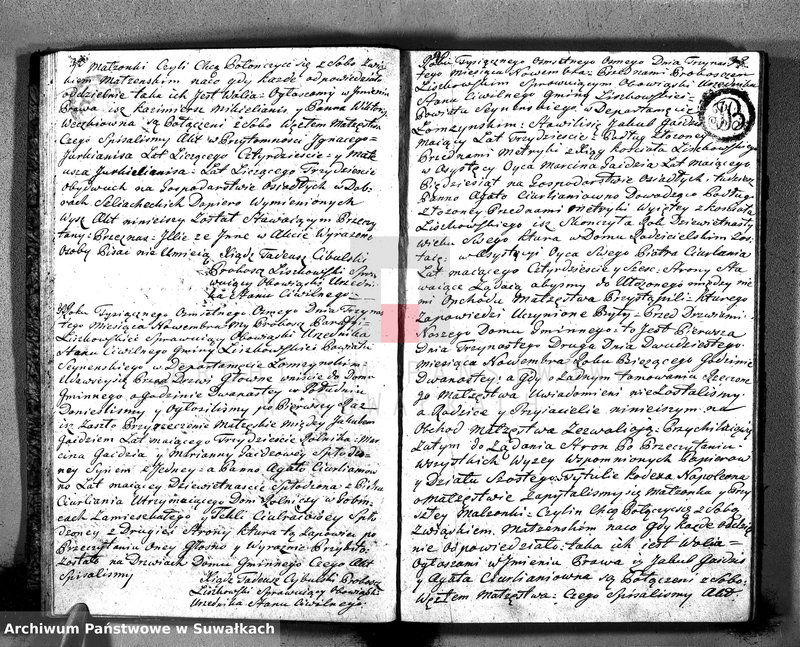 Małżonki Czyli Chcą Połonczyć się z Sobą Związ=
kiem Małżenskim naco gdy każde odpowiedziało
oddzielnie taka ich Jest Wolia= Ogłaszamy w Jmieniu
Prawa isz Kazimiersz Mikielianis= Panna
są Połączeni z Sobą Węzłem Małzęstwa
Czego Spisalismy Akt w Przytomności Jgnacego=
Jurkianisa Lat Liczącego Cztyrdziescie= y Mate
usza Jurkielianisa= Lat Liczącego Trzydziescie
obydwuch na Gospodarstwie Osiadłych w Dob=
rach Szliacheckich Dopiero Wymienionych
Wysz Akt niniejszy Został Stawaiącym Przeczy
tany= Przeznas= Jllie Ze Jnne w Akcie Wyrazone
Osoby Pisać nie Umieią Xiądz Tadeusz Cibulski
Probosz Liszkowski Spra
wuiący Obowiąski Urzęd=
nika Stanu Civilnego=
Roku Tysiącznego Osmsetnego Osmego Dnia Trzynas
tego Miesiąca Nowembra My Probosz Parafij
Liszkowskiei Sprawuiący Obowiąski Urzednika
Stanu Civilnego Gminy Liszkowskiei Powiatu
Seynenskiego w Departamencie Łomzynskim=
Udawszysz Przed Drzwi Głowne wniscie do Domu
Gminnego o Godzinie Dwanastey w Południu
Doniesliśmy y Ogłosiliśmy po Pierwszy Raz=
isz Zaszło Przyrzeczenie Małzęskie między Jakubem
Gaidziem Lat maiącego Trzydziescie Rolnika= Mar
cina Gaidzia y Marianny Gaidzowey Spłodzo=
ney Synem z Jedney= a Panno Agatą Ciurlianiow
no Lat maiącey Dziewietnascie Spłodzona z Piotra
Ciurliania Utrzymaiącego Dom Rolniczy w
cach Zamieszkałego y Tekli Spło
dzoney z Drugiei Strony ktura tą Zapowiedz po
Przeczytaniu Oney Głosno y Wyraznie Przybita
Została na Drzwiach Domu Gminnego Czego Akt
Spisalismy
Xiądz Tadeusz Cybulski Probosz
Liszkowski Sprawuiący Obowiąski
Urzednika Stanu Civilnego.
Roku Tysiącznego Osmsetnego Osmego Dnia Trzynas
tego Miesiąca Nowembra= Przednami Proboszczem
Liszkowskim Sprawuiącym Obowiąski Urzednika
Stanu Civilnego Gminy Liszkowskiei=
Powiatu Seynenskiego w Departamencie
Łomzynskim: Stawiliśie Jakub Gaidis
maiący Lat Trzydziescie= Podług Złozoney
Przednami Metryki z Xiąg Koscioła Liszkowskiego
w Asystęcyi Oyca Marcina Gaidzia Lat maiącego
Pięydziesiąt na Gospodarstwie Osiadłych, tudziesz
Panno Agata Ciurlianiowno Dowodząca Podług
Złozoney Przednami Metryki Wyczętey z Koscioła
Liszkowskiego isz Skonczyła Rok Dziewietnasty
wieku Swego ktura w Domu Rodzicielskim Zos=
taie: w Asystęcyi Oyca Swego Piotra Ciurlania
Lat maiącego Cztyrdziescie y Szesc= Strony Sta
waiące Ządaią abysmy do Ułozonego między nie
mi Obchodu Małzęstwa Przystąpili= kturego
Zapowiedzi Uczynione Były= Przed Drzwiami=
Naszego Domu Gminnego: to Jest Pierwsza
Dnia Trzynastego Druga Dnia Dwudziestego
miesiąca Nowembra Roku Biezącego Godzinie
Dwanastey: a Gdy o Zadnym tamowaniu Rzeczone
go Małzęstwa Uwiadomieni nie Zostaliśmy
a Rodzice y Przyiaciele niniejszym na
Obchod Małzęstwa Zezwalaią= Przychilaiąc
Zatym do Ządania Stron Po Przeczytaniu=
Wszystkich Wyzey Wspomnionych Papierow
y Działu Szostego w Tytule Kodexa Napoleona
o Małzęstwie Zapytalismysz Małzonka y Przy
szłey Małzonki= Czylin Chcą Połączysz z Sobą
Związkiem Małzenskim naco Gdy kazde oddziel
nie odpowiedziało: taka ich jest Wolia=
Ogłaszami w Jmieniu Prawa isz Jakub Gaidis
y Agata Ciurlianiowna są Połączeni z Sobą=
Węzłem Małzęstwa= Czego Spisalismy Akt.
Archiwum Państwowe w Suwałkach